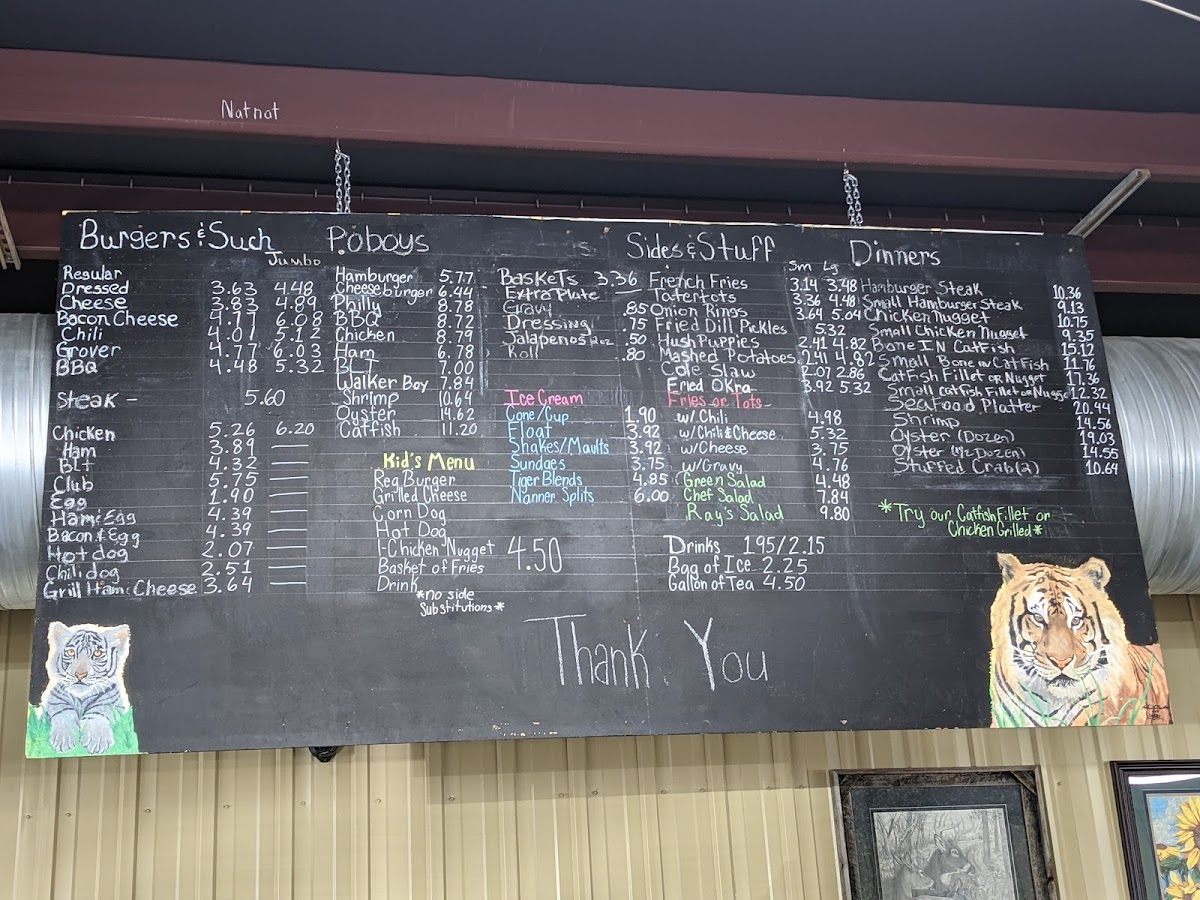 Natnat
Burgers & Such
Jumbo
Regular
Dressed 3.63 4.48
Cheese 3.83 4.89
Bacon Cheese 4.77 6.08
Chili 4.01 5.12
Grover 4.77 6.03
BBQ 4.48 5.32
Steak - 5.60
Chicken 5.26 6.20
Ham 3.89
BLT 4.32
Club 5.75
Egg 1.90
Ham & Egg 4.39
Bacon & Egg 4.39
Hot dog 2.07
Chili dog 2.51
Grill Ham & Cheese 3.64
Poboys
Hamburger 5.77
Cheeseburger 6.44
Philly 8.78
BBQ 8.72
Chicken 8.79
Ham 6.78
BLT 7.00
Walker Boy 7.84
Shrimp 10.64
Oyster 14.62
Catfish 11.20
Kid's Menu
Reg Burger
Grilled Cheese
Corn Dog
Hot Dog
1-Chicken Nugget 4.50
Basket of Fries
Drink
*no side
Substitutions*
Baskets 3.36
Extra Plate —
Gravy .85
Dressing .75
Jalapenos 2oz .50
Roll .80
Ice Cream
Cone/Cup 1.90
Float 3.92
Shakes/Maults 3.92
Sundaes 3.75
Tiger Blends 4.85
Nanner Splits 6.00
Sides & Stuff
Sm Lg
French Fries 3.14 3.48
Tatertots 3.36 4.48
Onion Rings 3.64 5.04
Fried Dill Pickles 5.32
Hush Puppies 2.41 4.82
Mashed Potatoes 2.41 4.82
Cole Slaw 2.07 2.86
Fried Okra 3.92 5.32
Fries or Tots
w/Chili 4.98
w/Chili & Cheese 5.32
w/Cheese 3.75
w/Gravy 4.76
Green Salad 4.48
Chef Salad 7.84
Ray's Salad 9.80
Drinks 1.95/2.15
Bag of Ice 2.25
Gallon of Tea 4.50
Dinners
Hamburger Steak 10.36
Small Hamburger Steak 9.13
Chicken Nugget 10.75
Small Chicken Nugget 9.35
Bone IN Catfish 15.12
Small Bone IN Catfish 11.76
Catfish Fillet or Nugget 17.36
Small catfish Fillet or Nugget 12.32
Seafood Platter 20.44
Shrimp 14.56
Oyster (Dozen) 19.03
Oyster (1/2 Dozen) 14.55
Stuffed Crab(2) 10.64
*Try our Catfish Fillet or
Chicken Grilled*
Thank You